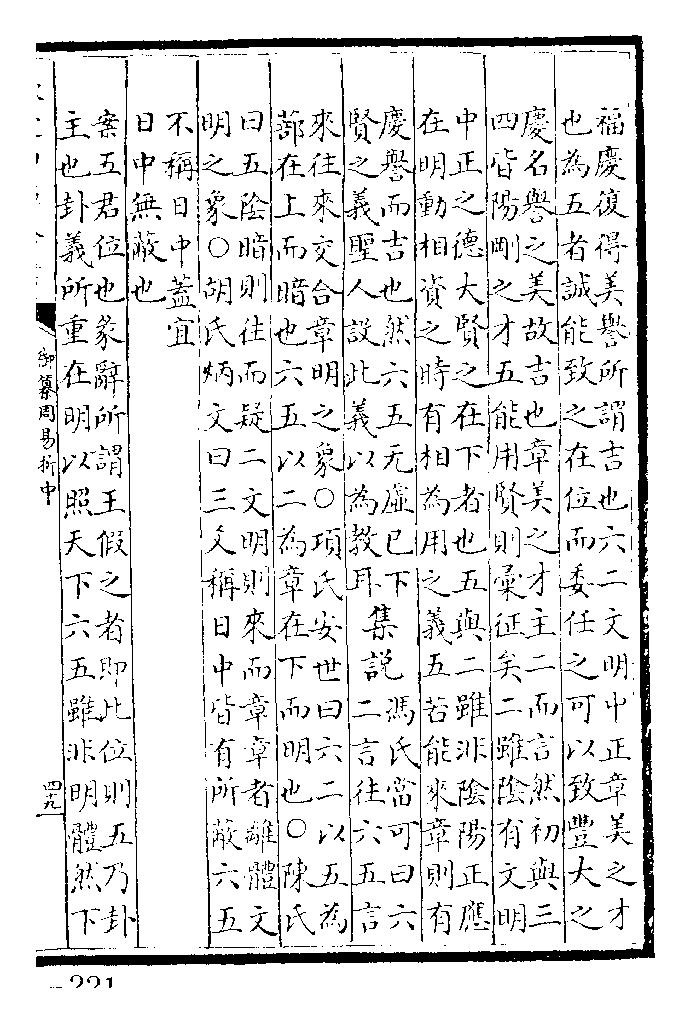 福慶復得美譽所謂吉也六二文明中正章美之才
也為五者誠能致之在位而委任之可以致豐大之
慶名譽之美故吉也章美之才主二而言然初與三
四皆陽剛之才五能用賢則彙征矣二雖陰有文明
中正之德大賢之在下者也五與二雖非陰陽正應
在明動相資之時有相為用之義五若能來章則有
慶譽而吉也然六五无虛已下
賢之義聖人設此義以為教耳
集說
馮氏當可曰六
二言往六五言
來往來交合章明之象○項氏安世曰六二以五為
蔀在上而暗也六五以二為章在下而明也○陳氏
曰五陰暗則往而疑二文明則來而章章者離體文
明之象○胡氏炳文曰三爻稱日中皆有所蔽六五
不稱日中蓋宜
日中無蔽也
案五君位也彖辭所謂王假之者即此位則五乃卦
主也卦義所重在明以照天下六五雖非明體然下
御纂周易折中
四九